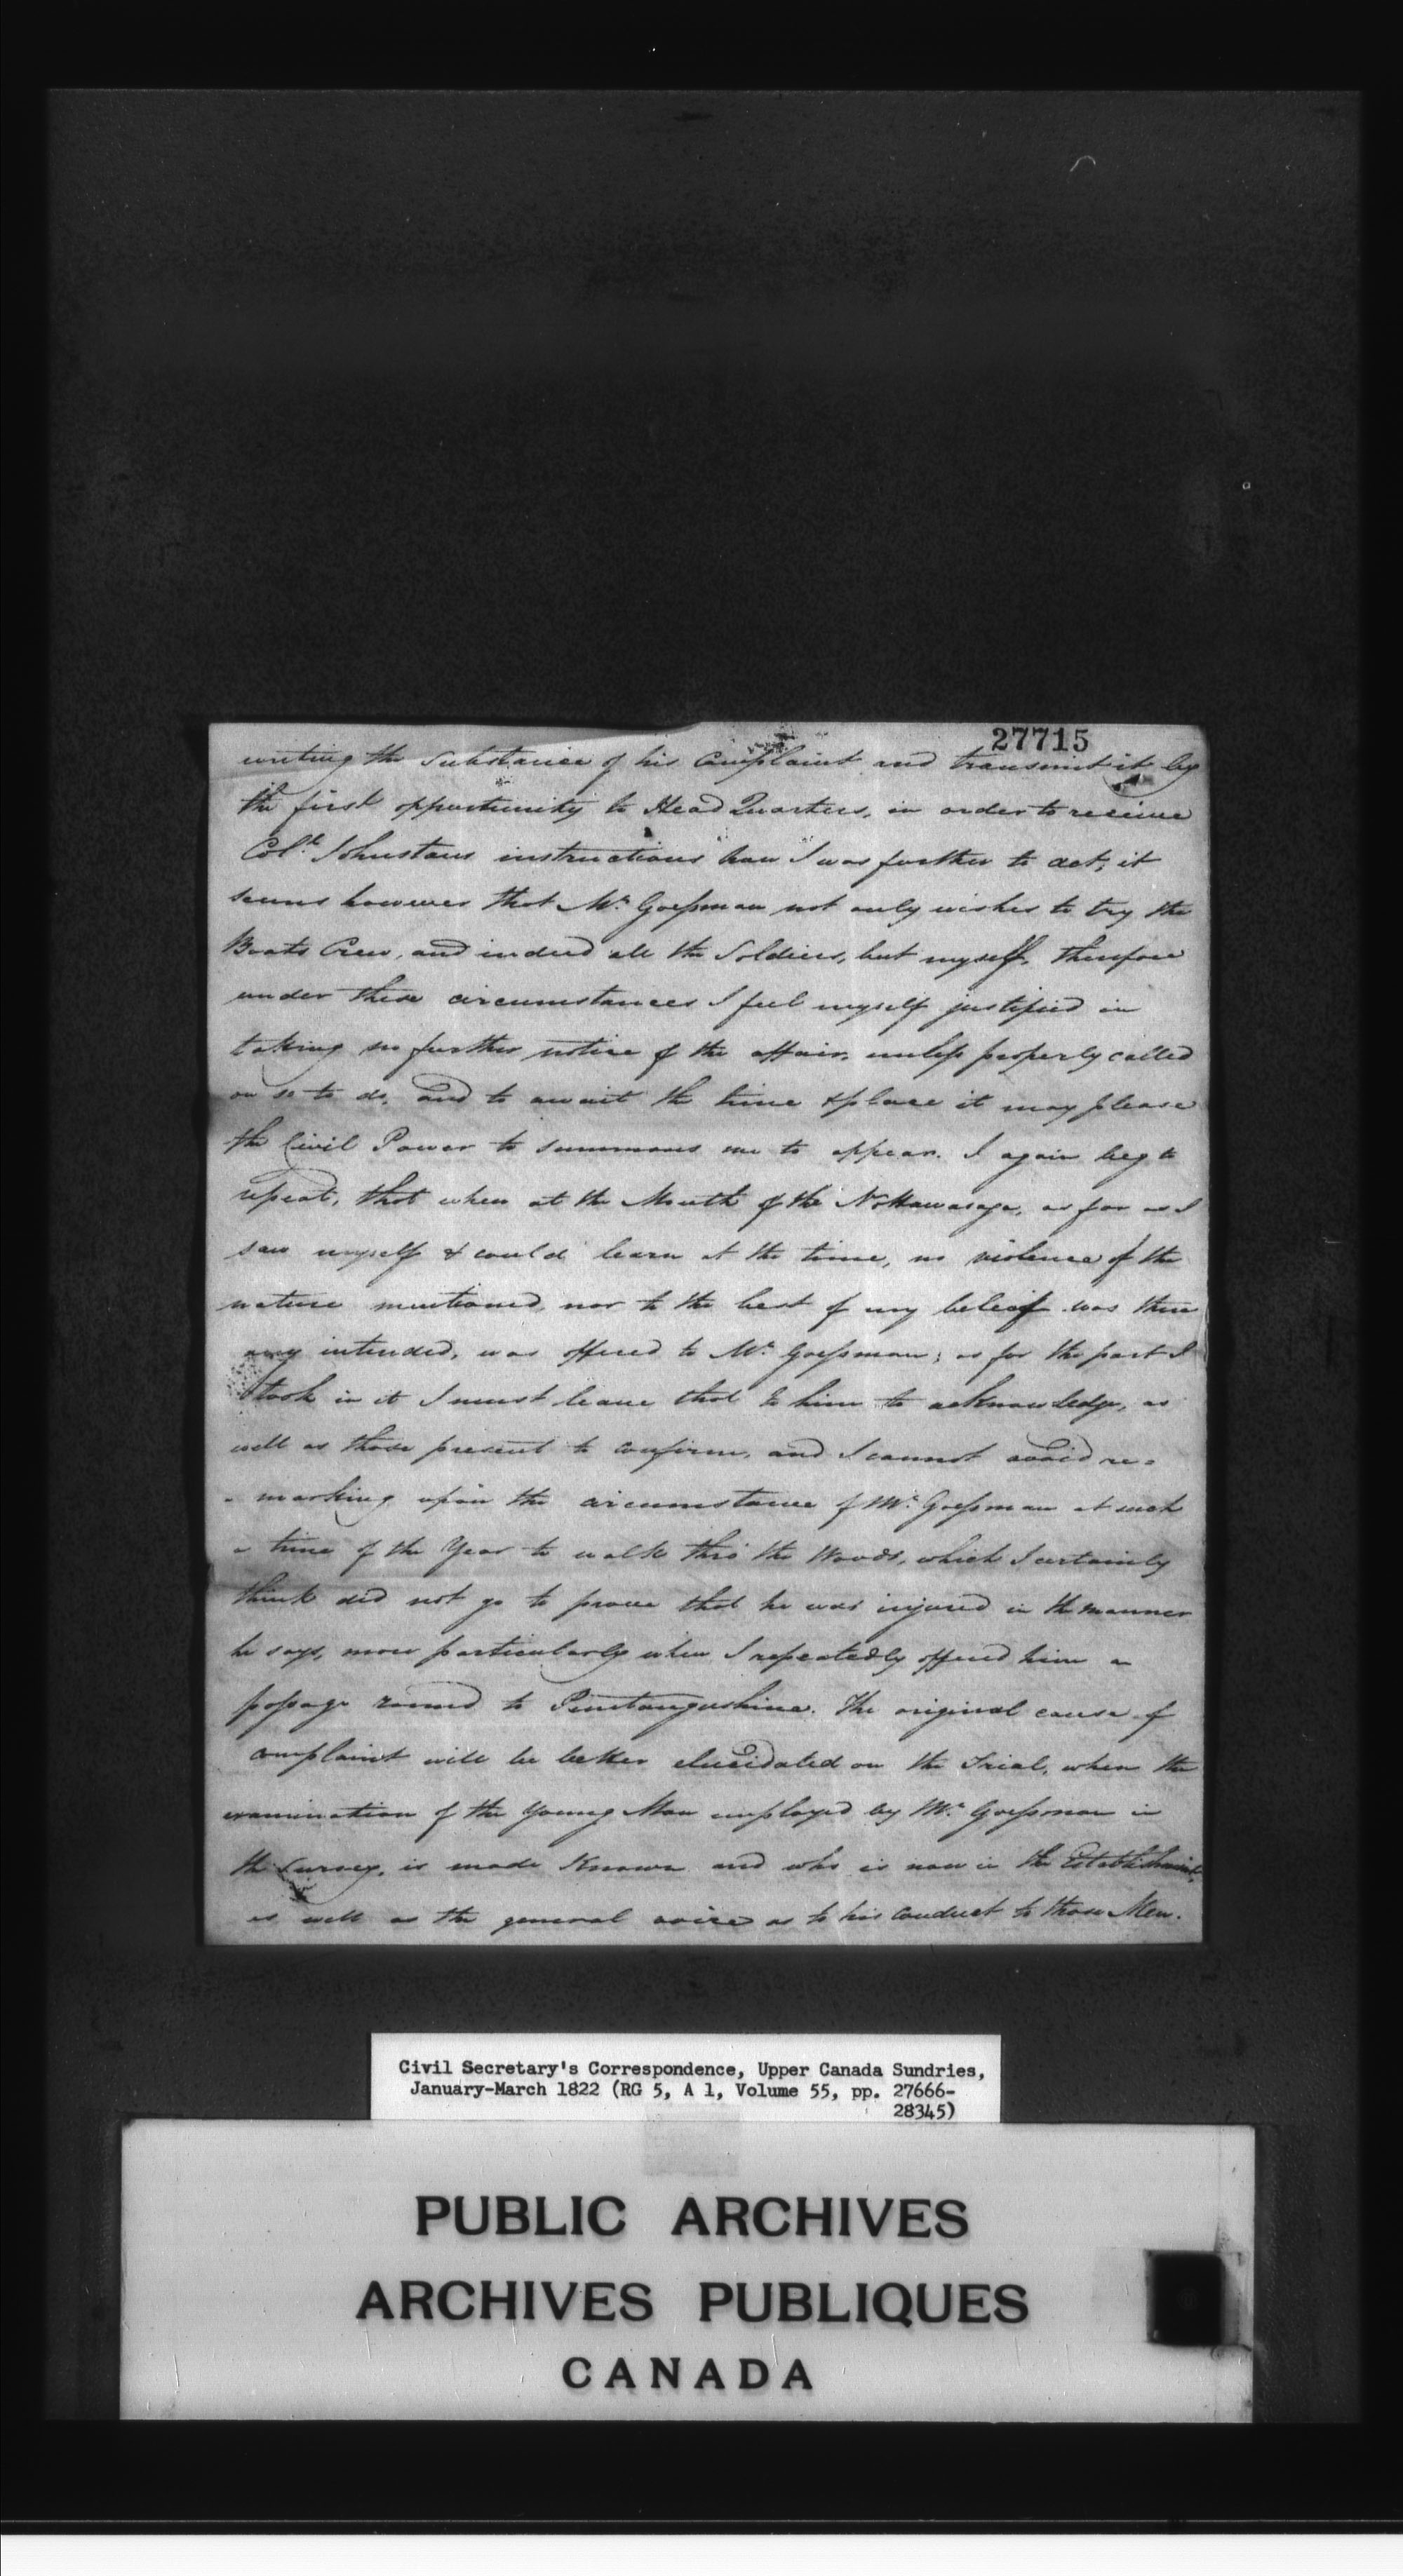 27715
writing the Substance of his Complaint and transmit it by
the first opportunity to Head Quarters, in order to receive
Col.^l Johnstons instructions how I was further to act, it
seems however that M.^r Goessman not only wishes to try the
Boats Crew, and indeed all the Soldiers, but myself, therefore
under these circumstances I feel myself justified in
taking no further notice of the affair, unless properly called
on so to do, and to await the time & place it may please
the Civil Power to summons me to appear. I again beg to
repeat, that when at the Mouth of the Nottawasaga, as far as I
saw myself & could learn at the time, no violence of the
nature mentioned, nor to the best of my belief was there
any intended, was offered to M.^r Goessman; as for the part I
took in it I must leave that to him to acknowledge, as
well as those present to confirm, and I cannot avoid re-
-marking upon the circumstance of M.^r Goessman at such
a time of the Year to walk thro' the Woods, which I certainly
think did not go to prove that he was injured in the manner
he says, more particularly when I repeatedly offered him a
passage round to Penetanguishine. The original cause of
complaint will be better elucidated on the Trial, when the
examination of the Young Man employed by M.^r Goessman in
the Survey, is made Known and who is now in the Establishment,
as well as the general voice as to his Conduct to those Men.
Civil Secretary's Correspondence, Upper Canada Sundries,
January-March 1822 (RG 5, A 1, Volume 55, pp. 27666-
28345)
PUBLIC ARCHIVES
ARCHIVES PUBLIQUES
CANADA